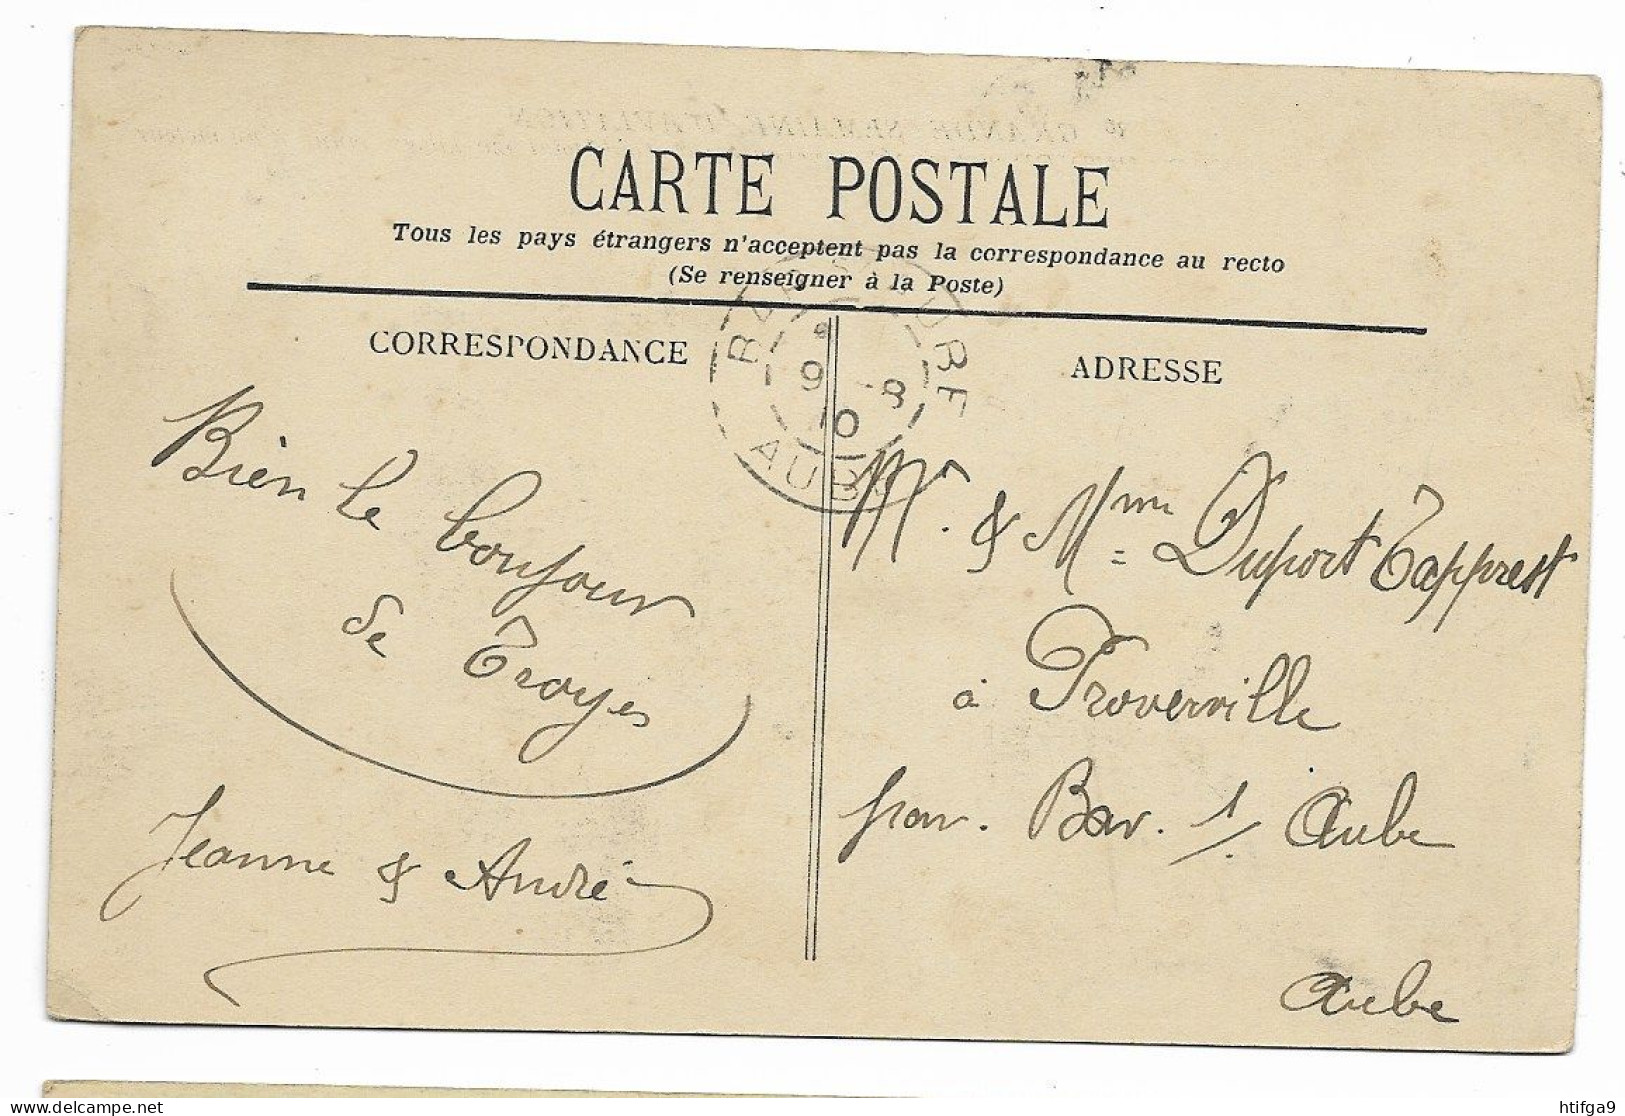 CARTE POSTALE
Tous les pays étrangers n'acceptent pas la correspondance au recto
(Se renseigner à la Poste)
CORRESPONDANCE
Bien le bonjour
de Troyes
Jeanne & André
ADRESSE
Mr. & Mme Duport Tapprest
à Proverville
par. Bar. s/. Aube
Aube
9 -8
10
AUBE
delcampe.net
htifga9